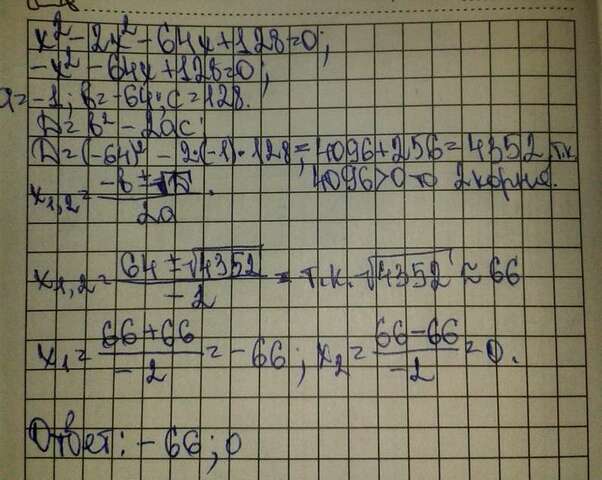 x² - 2x² - 64x + 128 = 0;
-x² - 64x + 128 = 0;
a = -1; в = -64; c = 128.
D = в² - 2ac;
D = (-64)² - 2·(-1)·128 = 4096 + 256 = 4352, т.к.
4096 > 0 то 2 корня.
x₁,₂ = (-в ± √D) / 2a.
x₁,₂ = (64 ± √4352) / -2 = т.к. √4352 ≈ 66
x₁ = (66 + 66) / -2 = -66; x₂ = (66 - 66) / -2 = 0.
Ответ: -66; 0